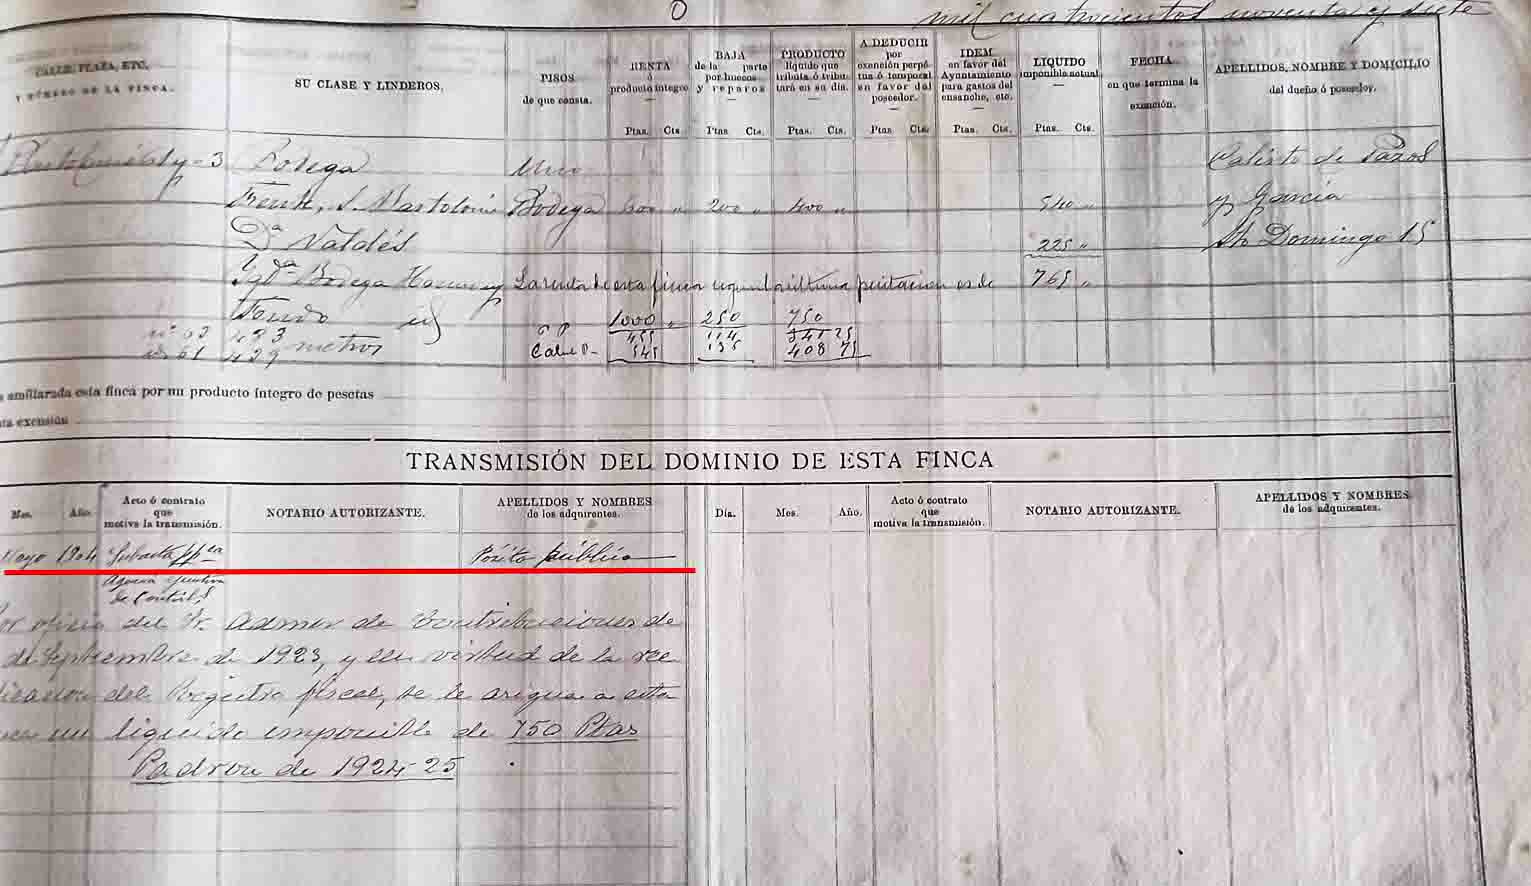 mil cuatrocientos noventa y siete
CALLE, PLAZA, ETC.
Y NÚMERO DE LA FINCA.
SU CLASE Y LINDEROS.
PISOS
de que consta.
RENTA
ó
producto íntegro
Ptas. Cts.
BAJA
de la parte
por huecos
y reparos
Ptas Cts.
PRODUCTO
líquido que
tributa ó tribu-
tará en su día.
Ptas. Cts.
A DEDUCIR
por
exención perpé-
tua ó temporal
en favor del
poseedor.
Ptas. Cts.
IDEM
en favor del
Ayuntamiento
para gastos del
ensanche, etc.
Ptas. Cts.
LÍQUIDO
imponible actual.
Ptas. Cts.
FECHA
en que termina la
exención.
APELLIDOS, NOMBRE Y DOMICILIO
del dueño ó poseedor.
3 Bodega Uno Calisto de Pazos
Frente, S. Bartolomé Bodega 600 " 200 " 400 " 540 " y García
Dª Valdés 225 " Sto Domingo 15
Izdª Bodega La renta de esta finca según última peritación es de 765 "
Fondo 1000 " 250 750
nº 62 423 455 114 341 25
nº 61 429 metros 545 135 408 75
amillarada esta finca por un producto íntegro de pesetas
exención
TRANSMISIÓN DEL DOMINIO DE ESTA FINCA
Mes.
Año.
Acto ó contrato
que
motiva la transmisión.
NOTARIO AUTORIZANTE.
APELLIDOS Y NOMBRES
de los adquirentes.
Día.
Mes.
Año.
Acto ó contrato
que
motiva la transmisión.
NOTARIO AUTORIZANTE.
APELLIDOS Y NOMBRES
de los adquirentes.
Mayo 1904 Subasta ppca Pósito público
Agencia ejecutiva
de Contribs
Por oficio del Sr. Admor de Contribuciones de
de Septiembre de 1923, y en virtud de la rec
del Registro fiscal, se le asigna a esta
un líquido imponible de 750 Ptas
Padron de 1924-25